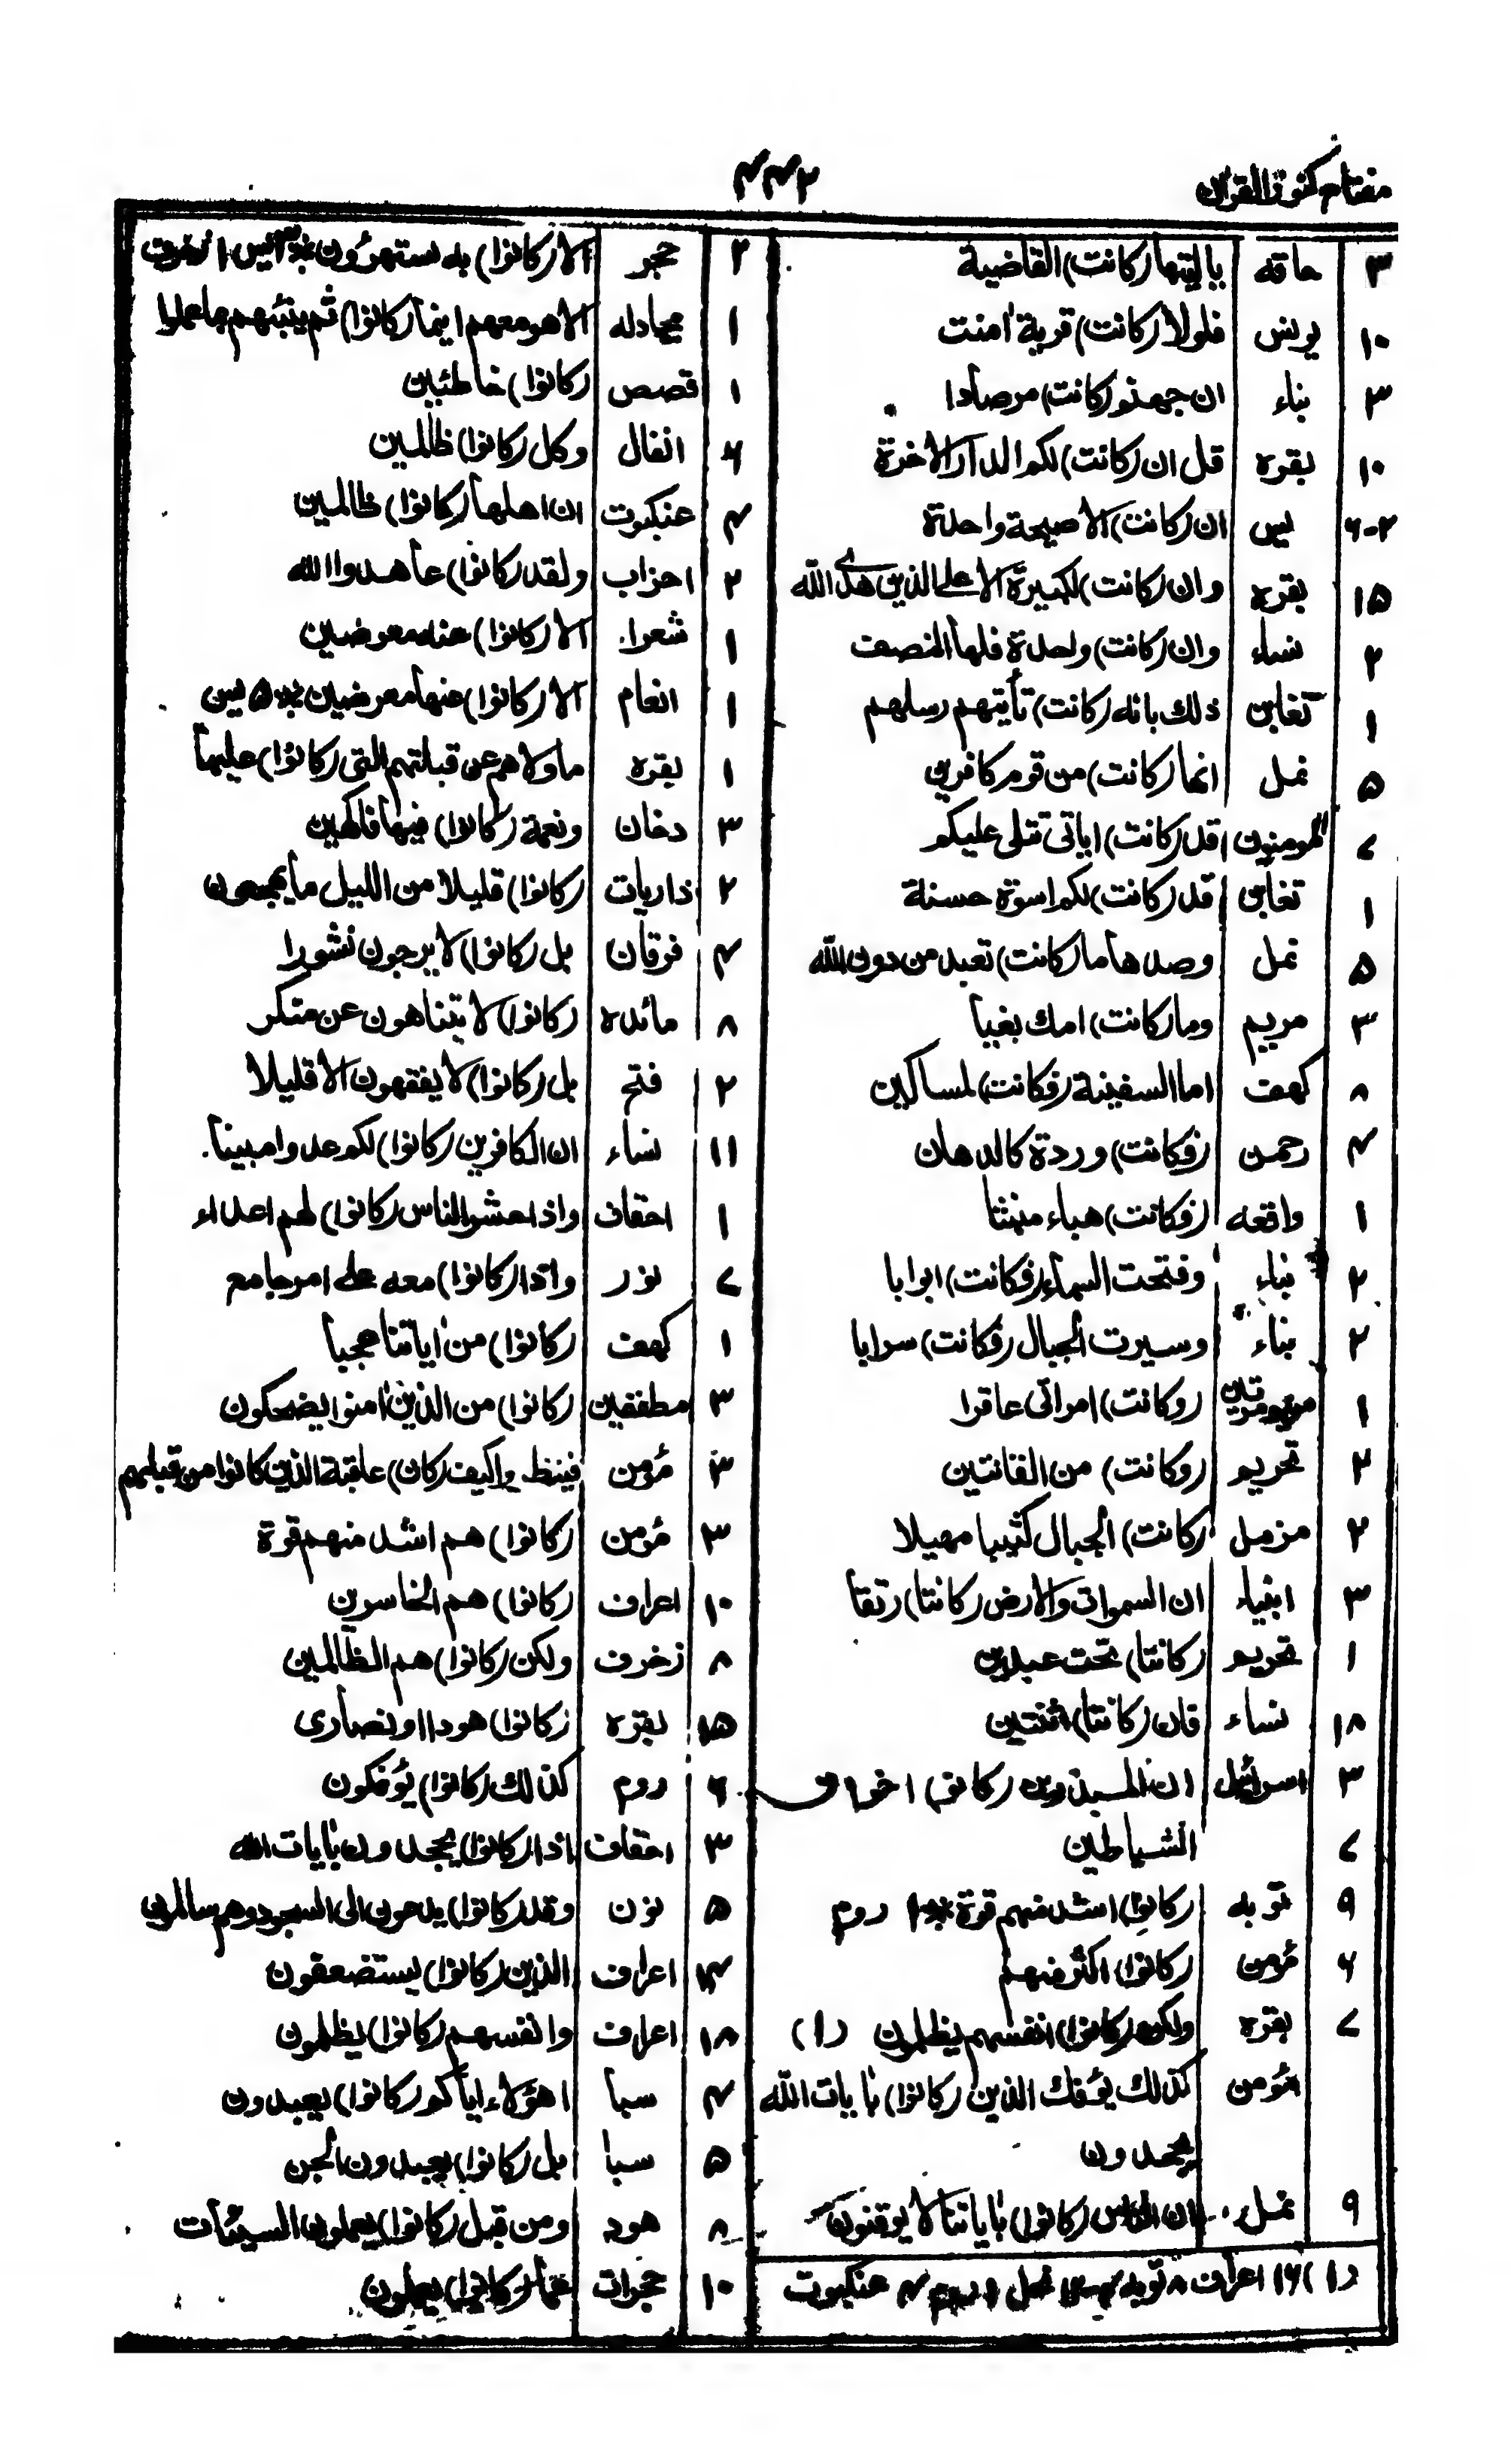 مفتاح کنوز القرآن
۴۴۲
۳ حاقه یالیتها (کانت) القاضیة
۱۰ یونس فلولا (کانت) قریة اٰمنت
۳ بناء ان جهنم (کانت) مرصادا
۱۰ بقره قل ان (کانت) لکم الدار الاخرة
۶-۲ یس ان (کانت) الا صیحة واحدة
۱۵ بقره وان (کانت) لکبیرة الا علی الذین هدی الله
۲ نساء وان (کانت) واحدة فلها النصف
۱ تغابن ذلك بانه (کانت) تأتیهم رسلهم
۵ نمل انها (کانت) من قوم کافرین
۷ المومنین قد (کانت) ایاتی تتلی علیکم
۱ تغابن قد (کانت) لکم اسوة حسنة
۵ نمل وصدها ما (کانت) تعبد من دون الله
۳ مریم وما (کانت) امك بغیا
۸ کهف اما السفینة (فکانت) لمساکین
۴ رحمن (فکانت) وردة کالدهان
۱ واقعه (فکانت) هباء منبثا
۲ نباء وفتحت السماء (فکانت) ابوابا
۲ بناء وسیرت الجبال (فکانت) سرابا
۱ (وکانت) امراتی عاقرا
۲ تحریم (وکانت) من القانتین
۲ مزمل (کانت) الجبال کثیبا مهیلا
۳ انبیاء ان السموات والارض (کانتا) رتقا
۱ تحریم (کانتا) تحت عبدین
۱۸ نساء فان (کانتا) اثنتین
۳ اسرائیل ان المبذرین (کانوا) اخوان
۷ الشیاطین
۹ توبه (کانوا) اشد منهم قوة روم
۶ مؤمن (کانوا) اکثر منهم
۷ بقره ولکن (کانوا) انفسهم یظلمون (۱)
مؤمن کذلك یؤفك الذین (کانوا) بایات الله
یجحدون
۹ نمل ان الناس (کانوا) بایاتنا لا یوقنون
(۱) ۱۶ اعراف ۸ توبه نحل ۱ روم ۴ عنکبوت
۲ حجر الا (کانوا) به یستهزؤن
۱ مجادله الا هو معهم اینما (کانوا) ثم ینبئهم بما عملوا
۱ قصص (کانوا) خاطئین
۶ انفال وکل (کانوا) ظالمین
۴ عنکبوت ان اهلها (کانوا) ظالمین
۲ احزاب ولقد (کانوا) عاهدوا الله
۱ شعرا الا (کانوا) عنه معرضین
۱ انعام الا (کانوا) عنها معرضین یس
۱ بقره ماولاهم عن قبلتهم التی (کانوا) علیها
۳ دخان ونعمة (کانوا) فیها فاکهین
۲ ذاریات (کانوا) قلیلا من اللیل ما یهجعون
۴ فرقان بل (کانوا) لا یرجون نشورا
۸ مائده (کانوا) لا یتناهون عن منکر
۲ فتح بل (کانوا) لا یفقهون الا قلیلا
۱۱ نساء ان الکافرین (کانوا) لکم عدوا مبینا
۱ احقاف واذا حشر الناس (کانوا) لهم اعداء
۷ نور واذا (کانوا) معه علی امر جامع
۱ کهف (کانوا) من اٰیاتنا عجبا
۳ مطففین (کانوا) من الذین اٰمنوا یضحکون
۳ مؤمن فینظروا کیف (کان) عاقبة الذین کانوا من قبلهم
۳ مؤمن (کانوا) هم اشد منهم قوة
۱۰ اعراف (کانوا) هم الخاسرین
۸ زخرف ولکن (کانوا) هم الظالمین
۱۵ بقره (کانوا) هودا او نصاری
۶ روم کذلك (کانوا) یؤفکون
۳ احقاف اذ (کانوا) یجحدون بایات الله
۵ نون وقد (کانوا) یدعون الی السجود وهم سالمون
۱۴ اعراف الذین (کانوا) یستضعفون
۱۸ اعراف وانفسهم (کانوا) یظلمون
۴ سبا اهؤلاء ایاکم (کانوا) یعبدون
۵ سبا بل (کانوا) یعبدون الجن
۸ هود ومن قبل (کانوا) یعملون السیئات
۱۰ حجرات عما (کانوا) یعملون